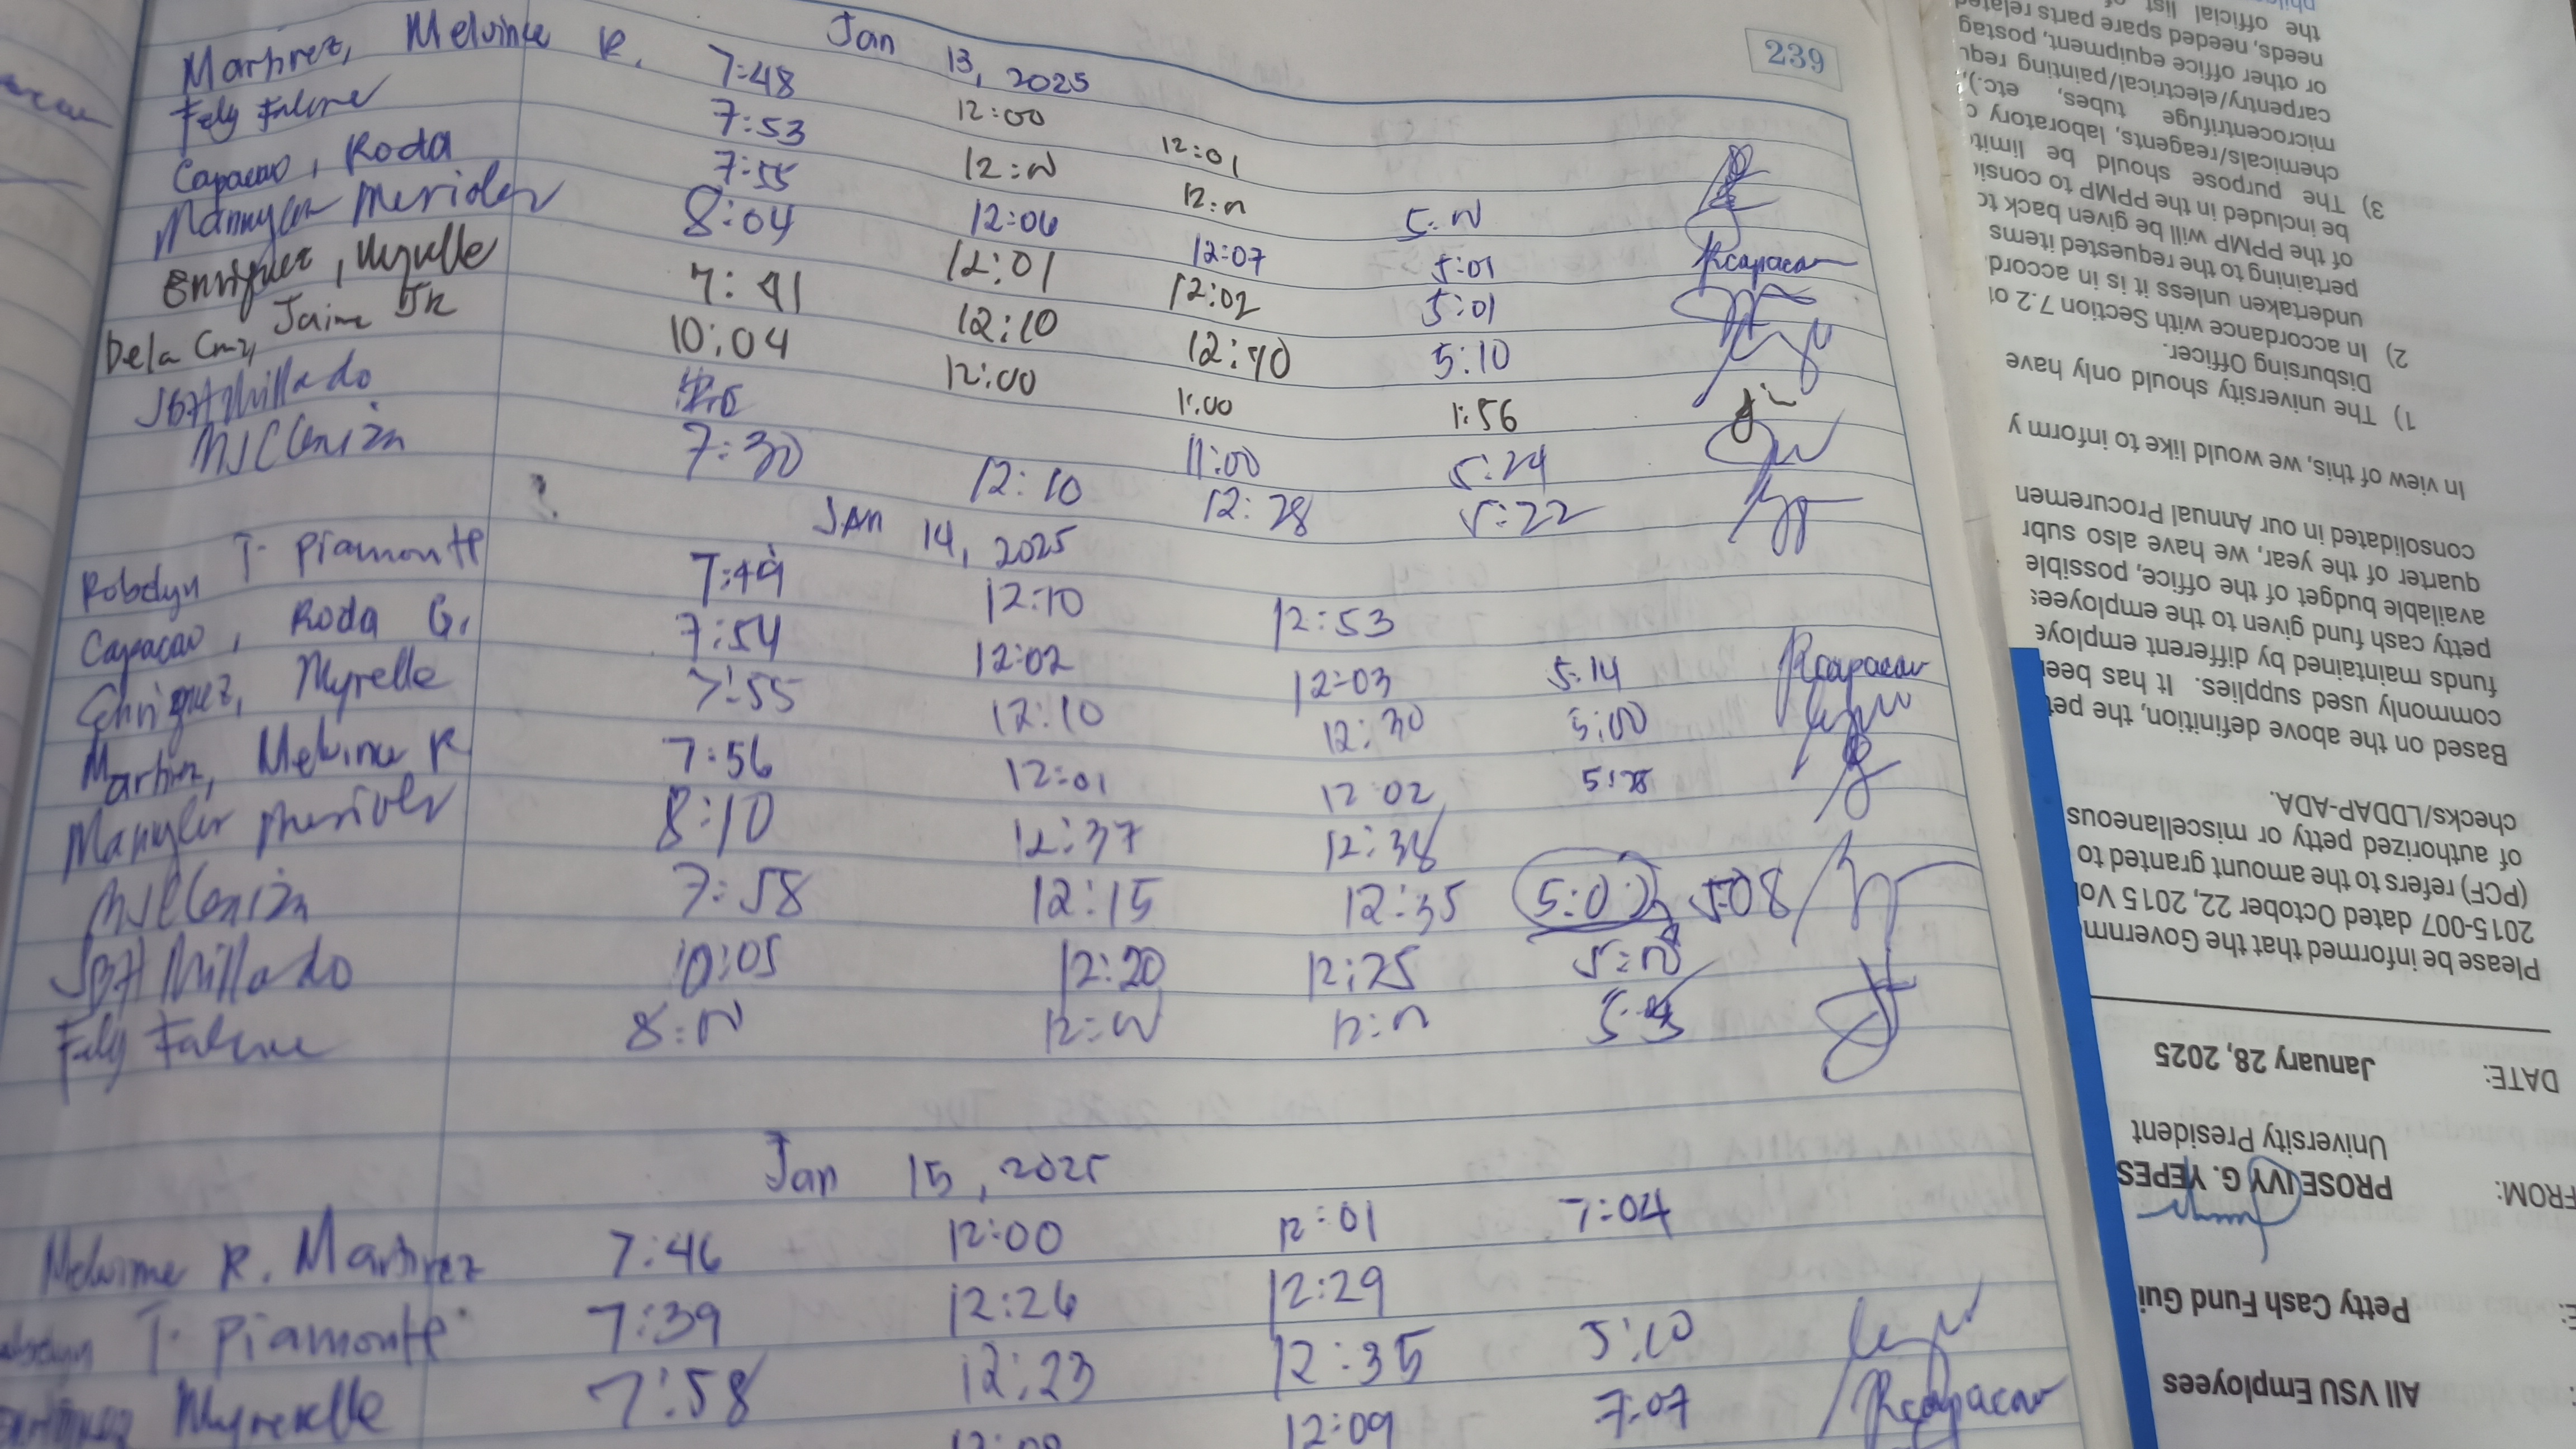 239
Jan 13, 2025
Martirez, Melvince R. 7:48 12:00 12:01
Fely Falcne 7:53 12:N 12:n 5:N
Capacao, Roda 7:55 12:06 12:07 5:01 Rcapacao
8:04 12:01 12:02 5:01
Enriquez, Myrelle 7:41 12:10 12:40 5:10
Dela Cruz, Jaime JR 10:04 12:00 1:00 1:56
JBA Millado 11:00 5:24
MJCCeniza 7:30 12:10 12:28 5:22
JAN 14, 2025
Robelyn T. Piamonte 7:49 12:10 12:53
Capacao, Roda G. 7:54 12:02 12:03 5:14 Rcapacao
Enriquez, Myrelle 7:55 12:10 12:30 5:00
Martirez, Melvince R 7:56 12:01 12:02 5:28
8:10 12:37 12:38
MJCCeniza 7:58 12:15 12:35 5:02 5:08
JBA Millado 10:05 12:20 12:25
Fely Falcne 8:N 12:N 12:n
Jan 15, 2025
Melvince R. Martirez 7:46 12:00 12:01 7:04
T. Piamonte 7:39 12:26 12:29
Myrelle 7:58 12:23 12:35 5:10
12:09 7:07 Rcapacao
All VSU Employees
Petty Cash Fund Gui
FROM: PROSE IVY G. YEPES
University President
DATE: January 28, 2025
Please be informed that the Governm
2015-007 dated October 22, 2015 Vol
(PCF) refers to the amount granted to
of authorized petty or miscellaneous
checks/LDDAP-ADA.
Based on the above definition, the pet
commonly used supplies. It has been
funds maintained by different employe
petty cash fund given to the employees
available budget of the office, possible
quarter of the year, we have also subr
consolidated in our Annual Procuremen
In view of this, we would like to inform y
1) The university should only have
Disbursing Officer.
2) In accordance with Section 7.2 of
undertaken unless it is in accord
pertaining to the requested items
of the PPMP will be given back to
be included in the PPMP to consid
3) The purpose should be limite
chemicals/reagents, laboratory c
microcentrifuge tubes, etc.),
carpentry/electrical/painting requ
or other office equipment, postag
needs, needed spare parts related
the official list of